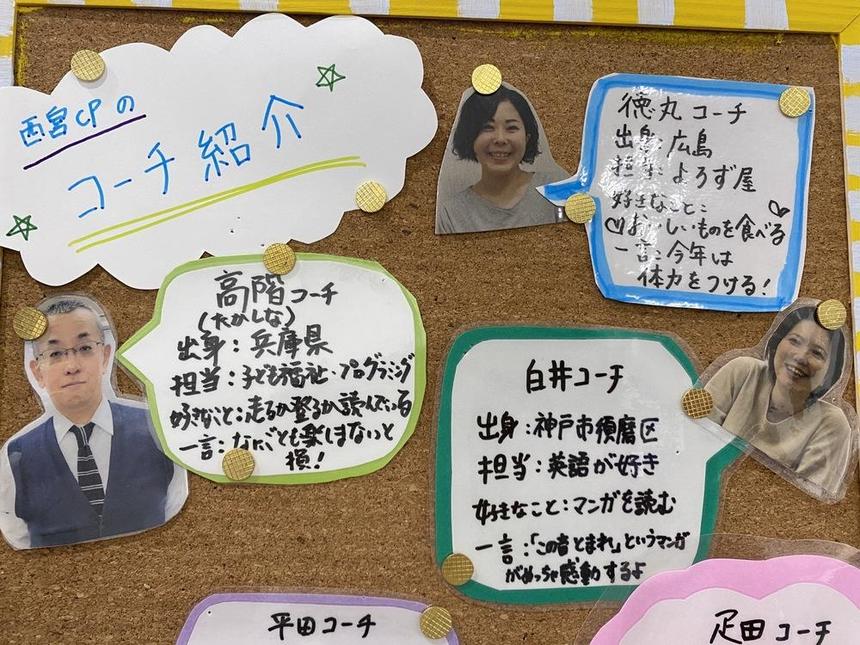 西宮CPの
コーチ紹介
徳丸コーチ
出身:広島
担当:よろず屋
好きなこと:
♡おいしいものを食べる♡
一言:今年は
体力をつける!
高階コーチ
(たかしな)
出身:兵庫県
担当:子ども福祉・プログラミング
好きなこと:走るか登るか読んでいる
一言:なにごとも楽しまないと
損!
白井コーチ
出身:神戸市須磨区
担当:英語が好き
好きなこと:マンガを読む
一言:「この音とまれ」というマンガ
がめっちゃ感動するよ
平田コーチ
疋田コーチ